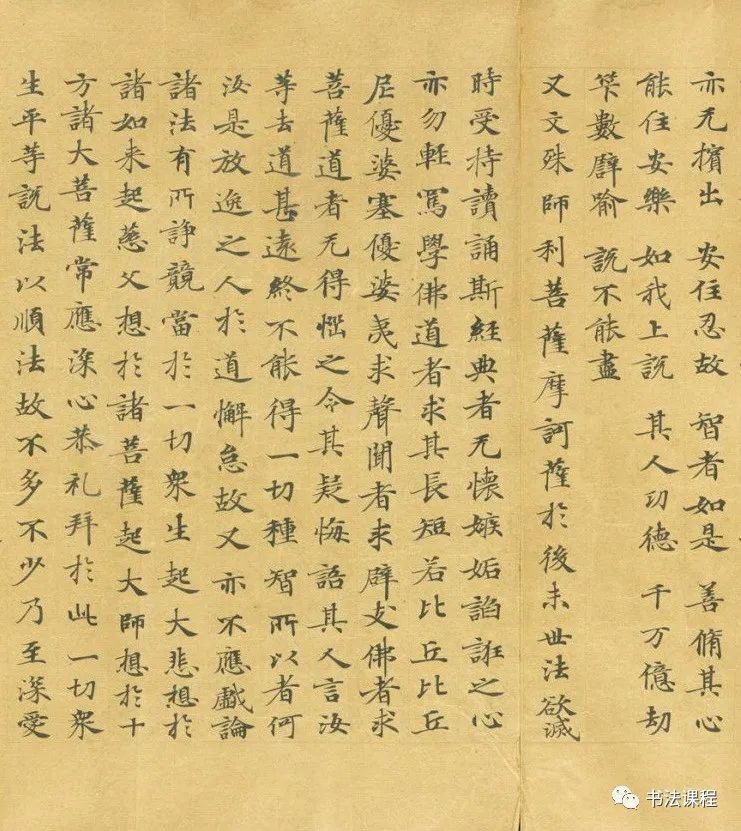 亦无擯出 安住忍故 智者如是 善脩其心
能住安樂 如我上説 其人功德 千万億劫
筭數譬喻 説不能盡
又文殊師利菩薩摩訶薩於後末世法欲滅
時受持讀誦斯經典者无懷嫉妬諂誑之心
亦勿輕罵學佛道者求其長短若比丘比丘
尼優婆塞優婆夷求聲聞者求辟支佛者求
菩薩道者无得惱之令其疑悔語其人言汝
等去道甚遠終不能得一切種智所以者何
汝是放逸之人於道懈怠故又亦不應戲論
諸法有所諍競當於一切衆生起大悲想於
諸如来起慈父想於諸菩薩起大師想於十
方諸大菩薩常應深心恭礼拜於此一切衆
生平等説法以順法故不多不少乃至深愛
书法课程